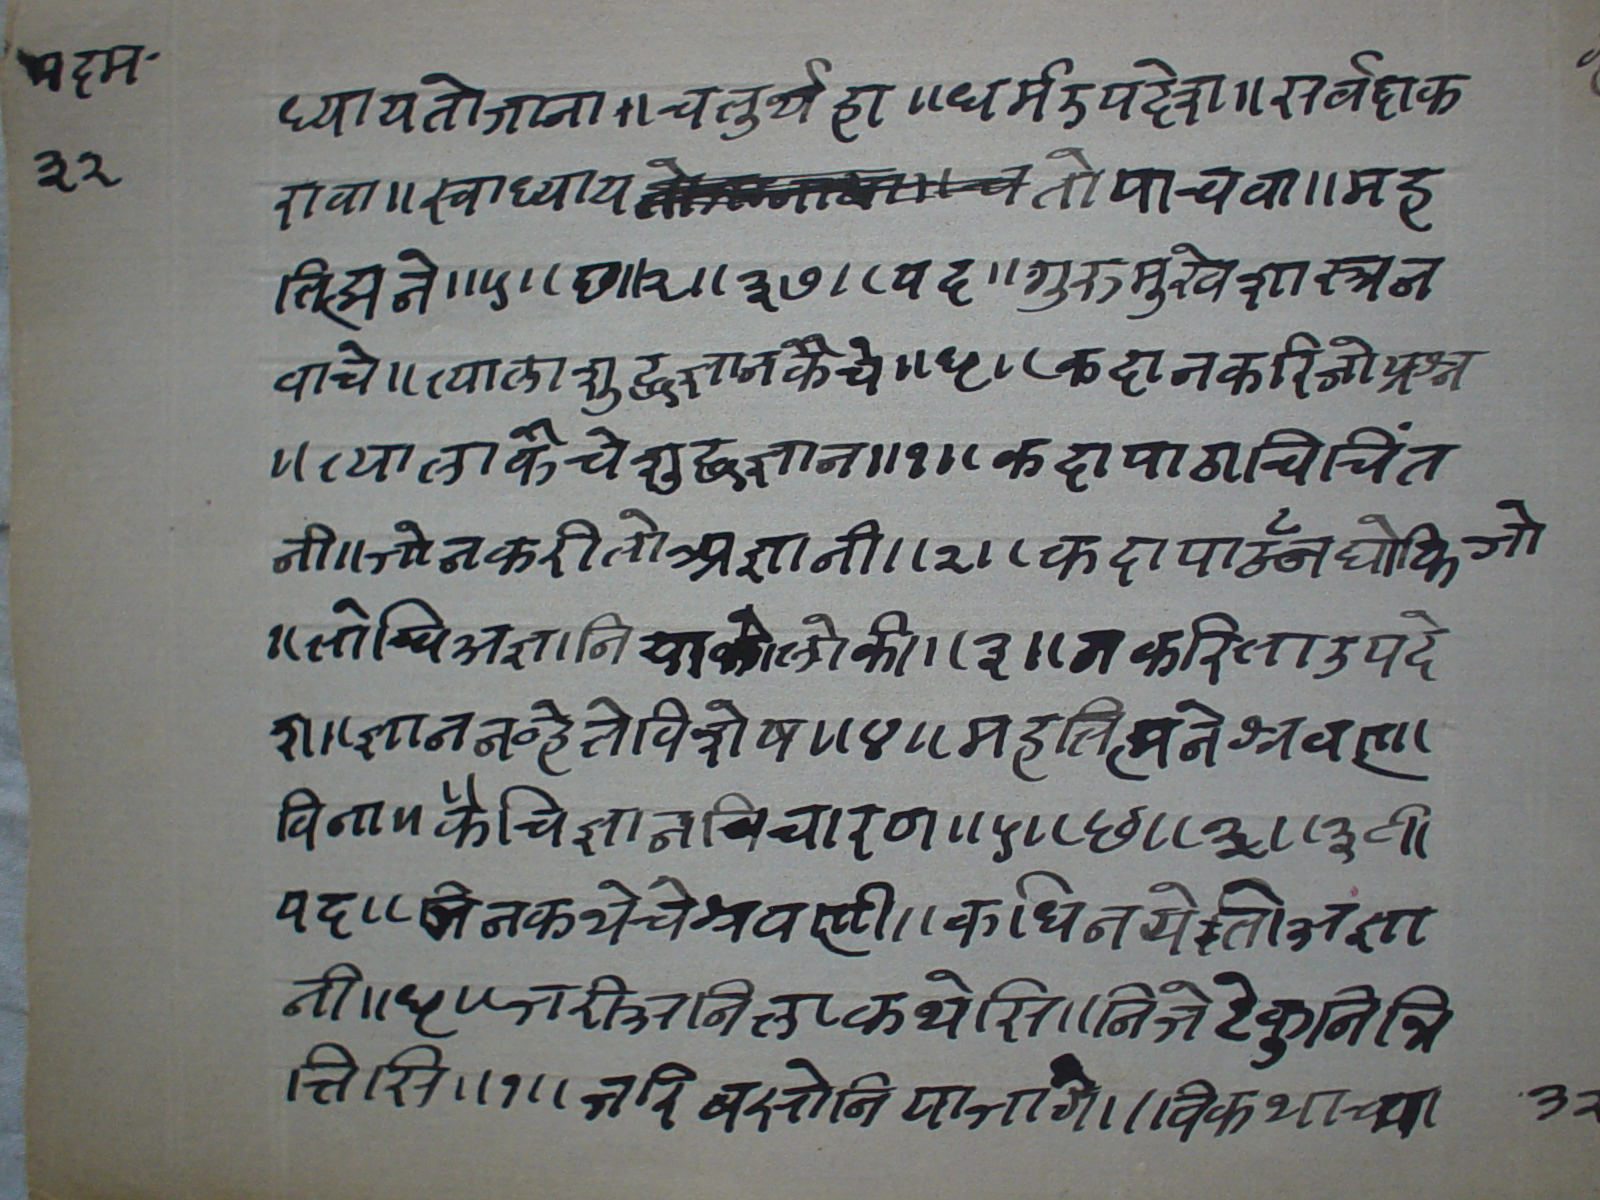 पदम-
३२
ध्यायतोजाना॥चतुर्थहा॥धर्मउपदेश॥सर्वदाक
रावा॥स्वाध्याय तोपाचवा॥मह
तिह्मने॥५॥छ॥२॥३७॥पद॥गुरुमुखेशास्त्रन
वाचे॥त्यालाशुद्धज्ञानकैचे॥धृ॥कदानकरिजोप्रश्न
॥त्यालाकैचेशुद्धज्ञान॥१॥कदापाठाचिचिंत
नी॥जोनकरीतोअज्ञानी॥२॥कदापाठनघोकिजो
॥तोचिअज्ञानि लोकी॥३॥नकरिताउपदे
श॥ज्ञाननव्हेतेविशेष॥४॥महतिह्मनेश्रवण॥
विना॥कैचिज्ञानविचारणा॥५॥छ॥३॥३८॥
पद॥जिनकथेचेश्रवणी॥कधिनयेतोअज्ञा
नी॥धृ॥जरीआनिलाकथेसि॥निजेटेकुनिभि
त्तिसि॥१॥जरिबसोनियाजागे॥विकथाच्या
३२